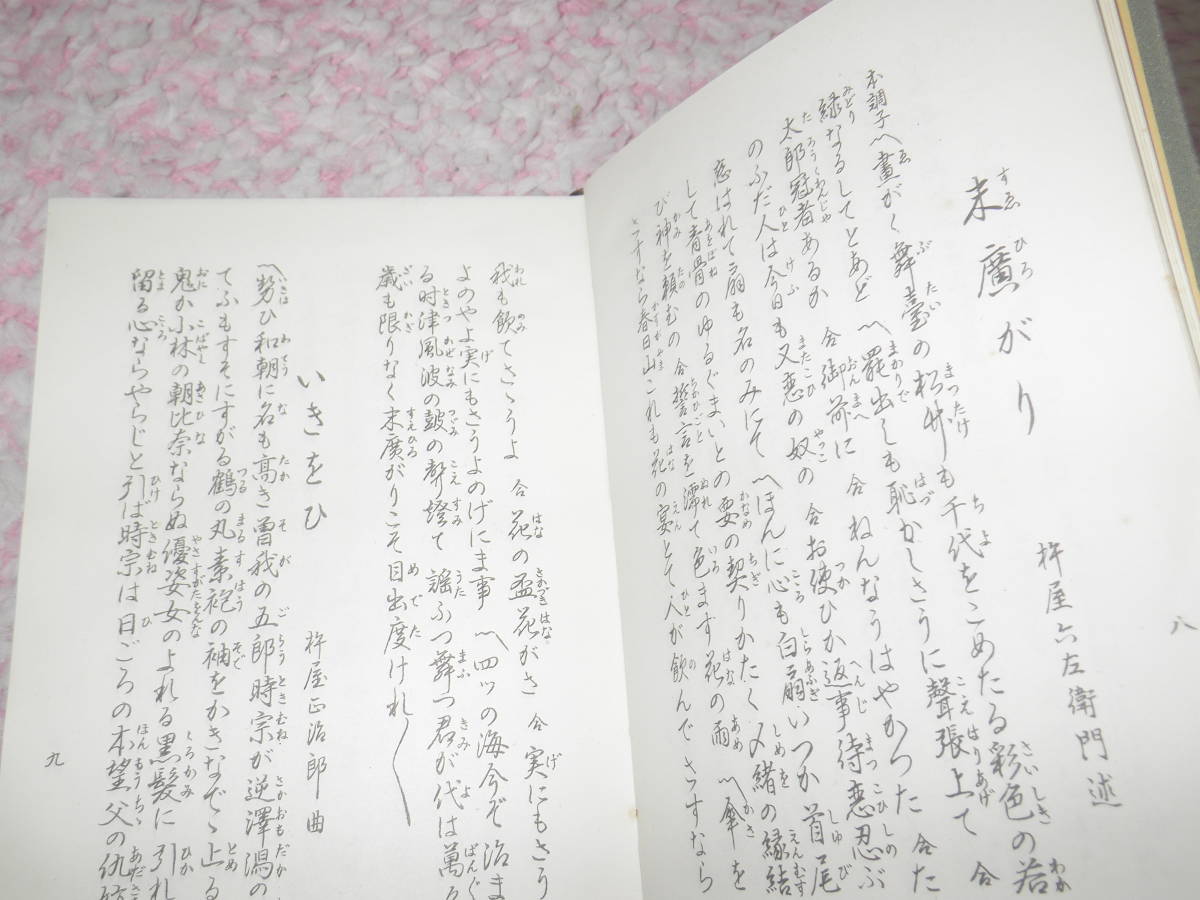 末廣がり
杵屋六左衛門述
本調子〽畫がく舞臺の松竹も千代をこめたる彩色の若
緑なるしてとあど 〽罷出しも恥かしさうに聲張上て 合
太郎冠者あるか 合御前に 合ねんなうはやかつた 合た
のふだ人は今日も又恋の奴の 合お使ひか返事待恋忍ぶ
恋はれて扇も名のみにて 〽ほんに心も白扇いつか首尾
して青骨のゆるぐまいとの要の契りかたく〆緒の縁結
び神を頼むの 合誓言を濡て色ます花の雨 〽傘を
さつすなら春日山これも花の宴とて人が飲んでさつすなら
八
我も飲てさゝうよ 合花の盃花がさ 合実にもさう
よのやよ実にもさうよのげにま事 〽四ッの海今ぞ治ま
る時津風波の皷の声澄て 謡ふつ舞つ君が代は萬々
歳も限りなく末廣がりこそ目出度けれ〳〵
いきをひ
杵屋正治郎曲
〽勢ひ和朝に名も高き曽我の五郎時宗が逆澤潟の
てふもすそにすがる鶴の丸素袍の袖をかきなでゝ上る
鬼か小林の朝比奈ならぬ優姿女のよれる黒髪に引れ
留る心ならやらじと引ば時宗は日ごろの本望父の仇
九